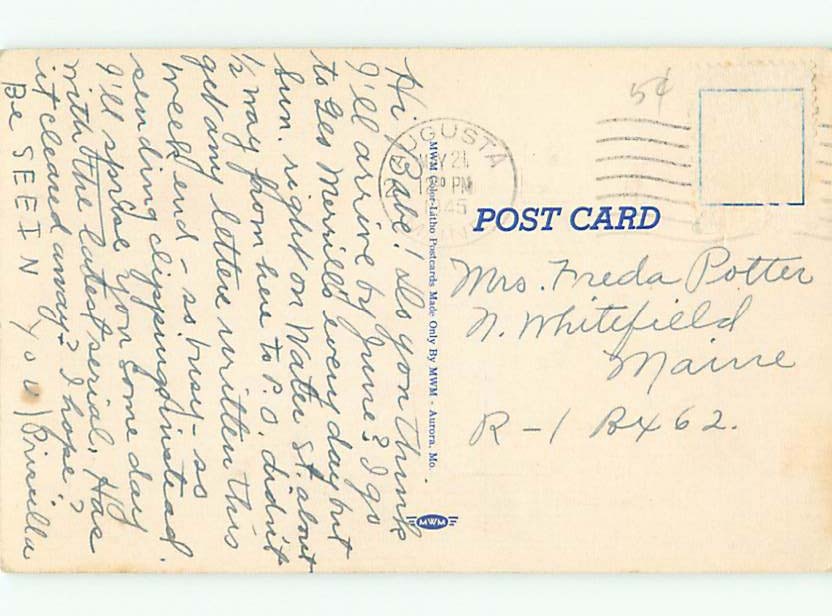 Hi, Babe! Do you think
I'll arrive by June? I go
to Geo Merrill's every day but
Sun. right on Water St. about
1/2 way from here to P.O. didn't
get any letters written this
week end - so busy - so
sending clippings instead.
I'll sprise you some day
with the latest serial. Has
it cleared away? I hope?
Be SEEIN YOU Priscilla
MWM Color-Litho Postcards Made Only By MWM - Aurora, Mo.
MWM
5¢
AUGUSTA
21
PM
1945
POST CARD
Mrs. Freda Potter
N. Whitefield
Maine
R-1 Bx 62.